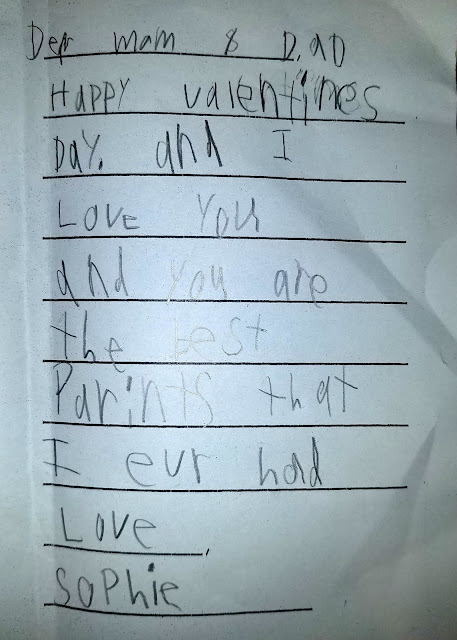 Der mam & D.AD
HAPPY valentines
DAY. and I
LOVE YOU
and you are
the best
Parints that
I evr had
Love,
SoPhie